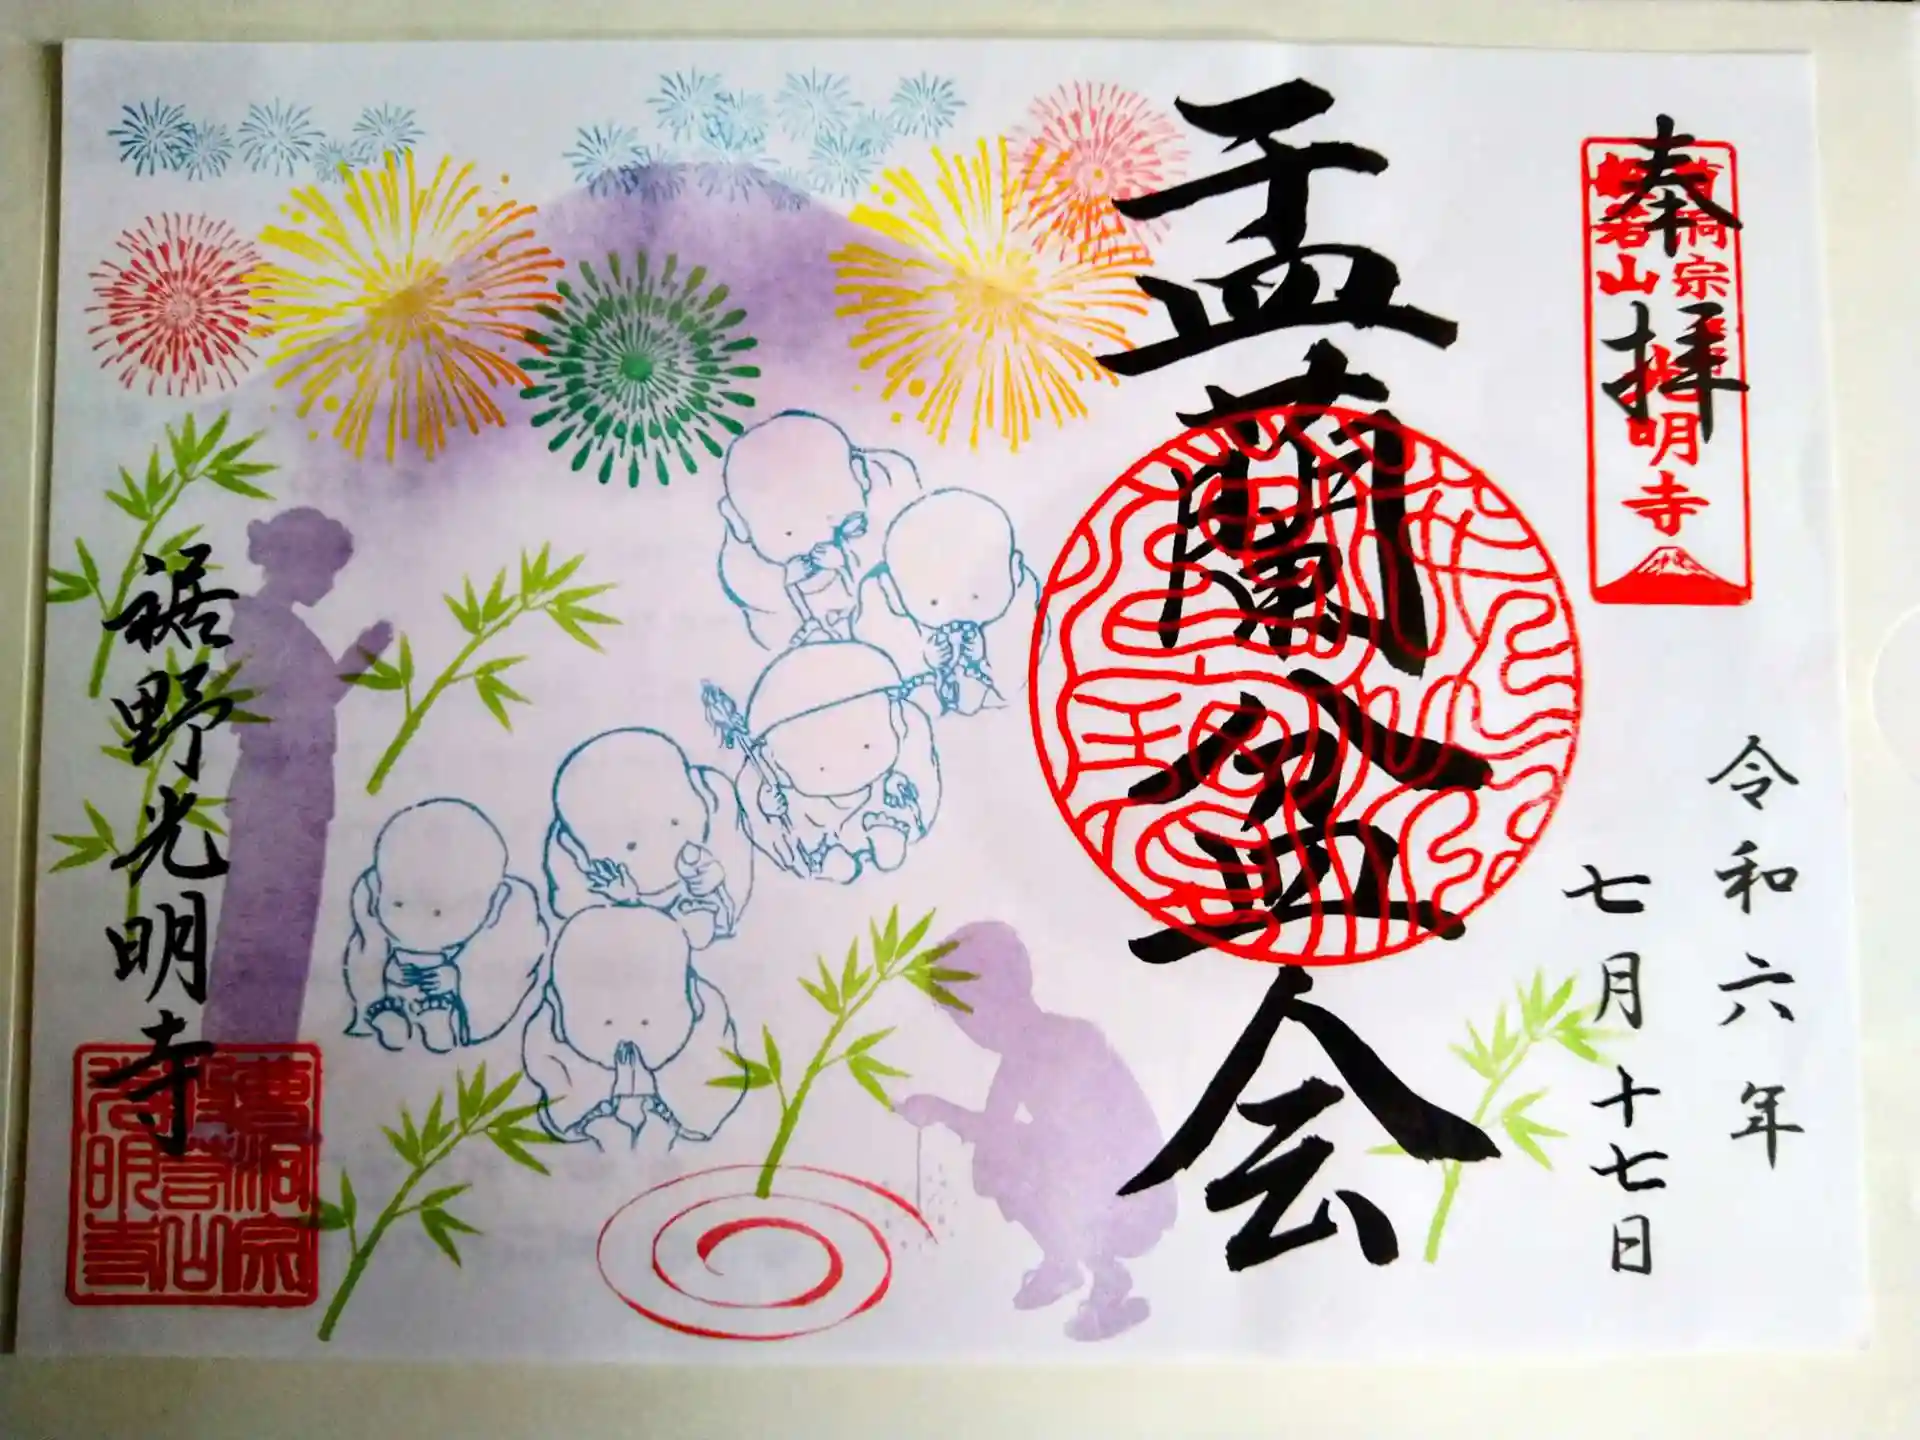 奉拝
曹洞宗
岩山
光明寺
令和六年
七月十七日
盂蘭盆会
裾野光明寺
曹洞宗
光明寺